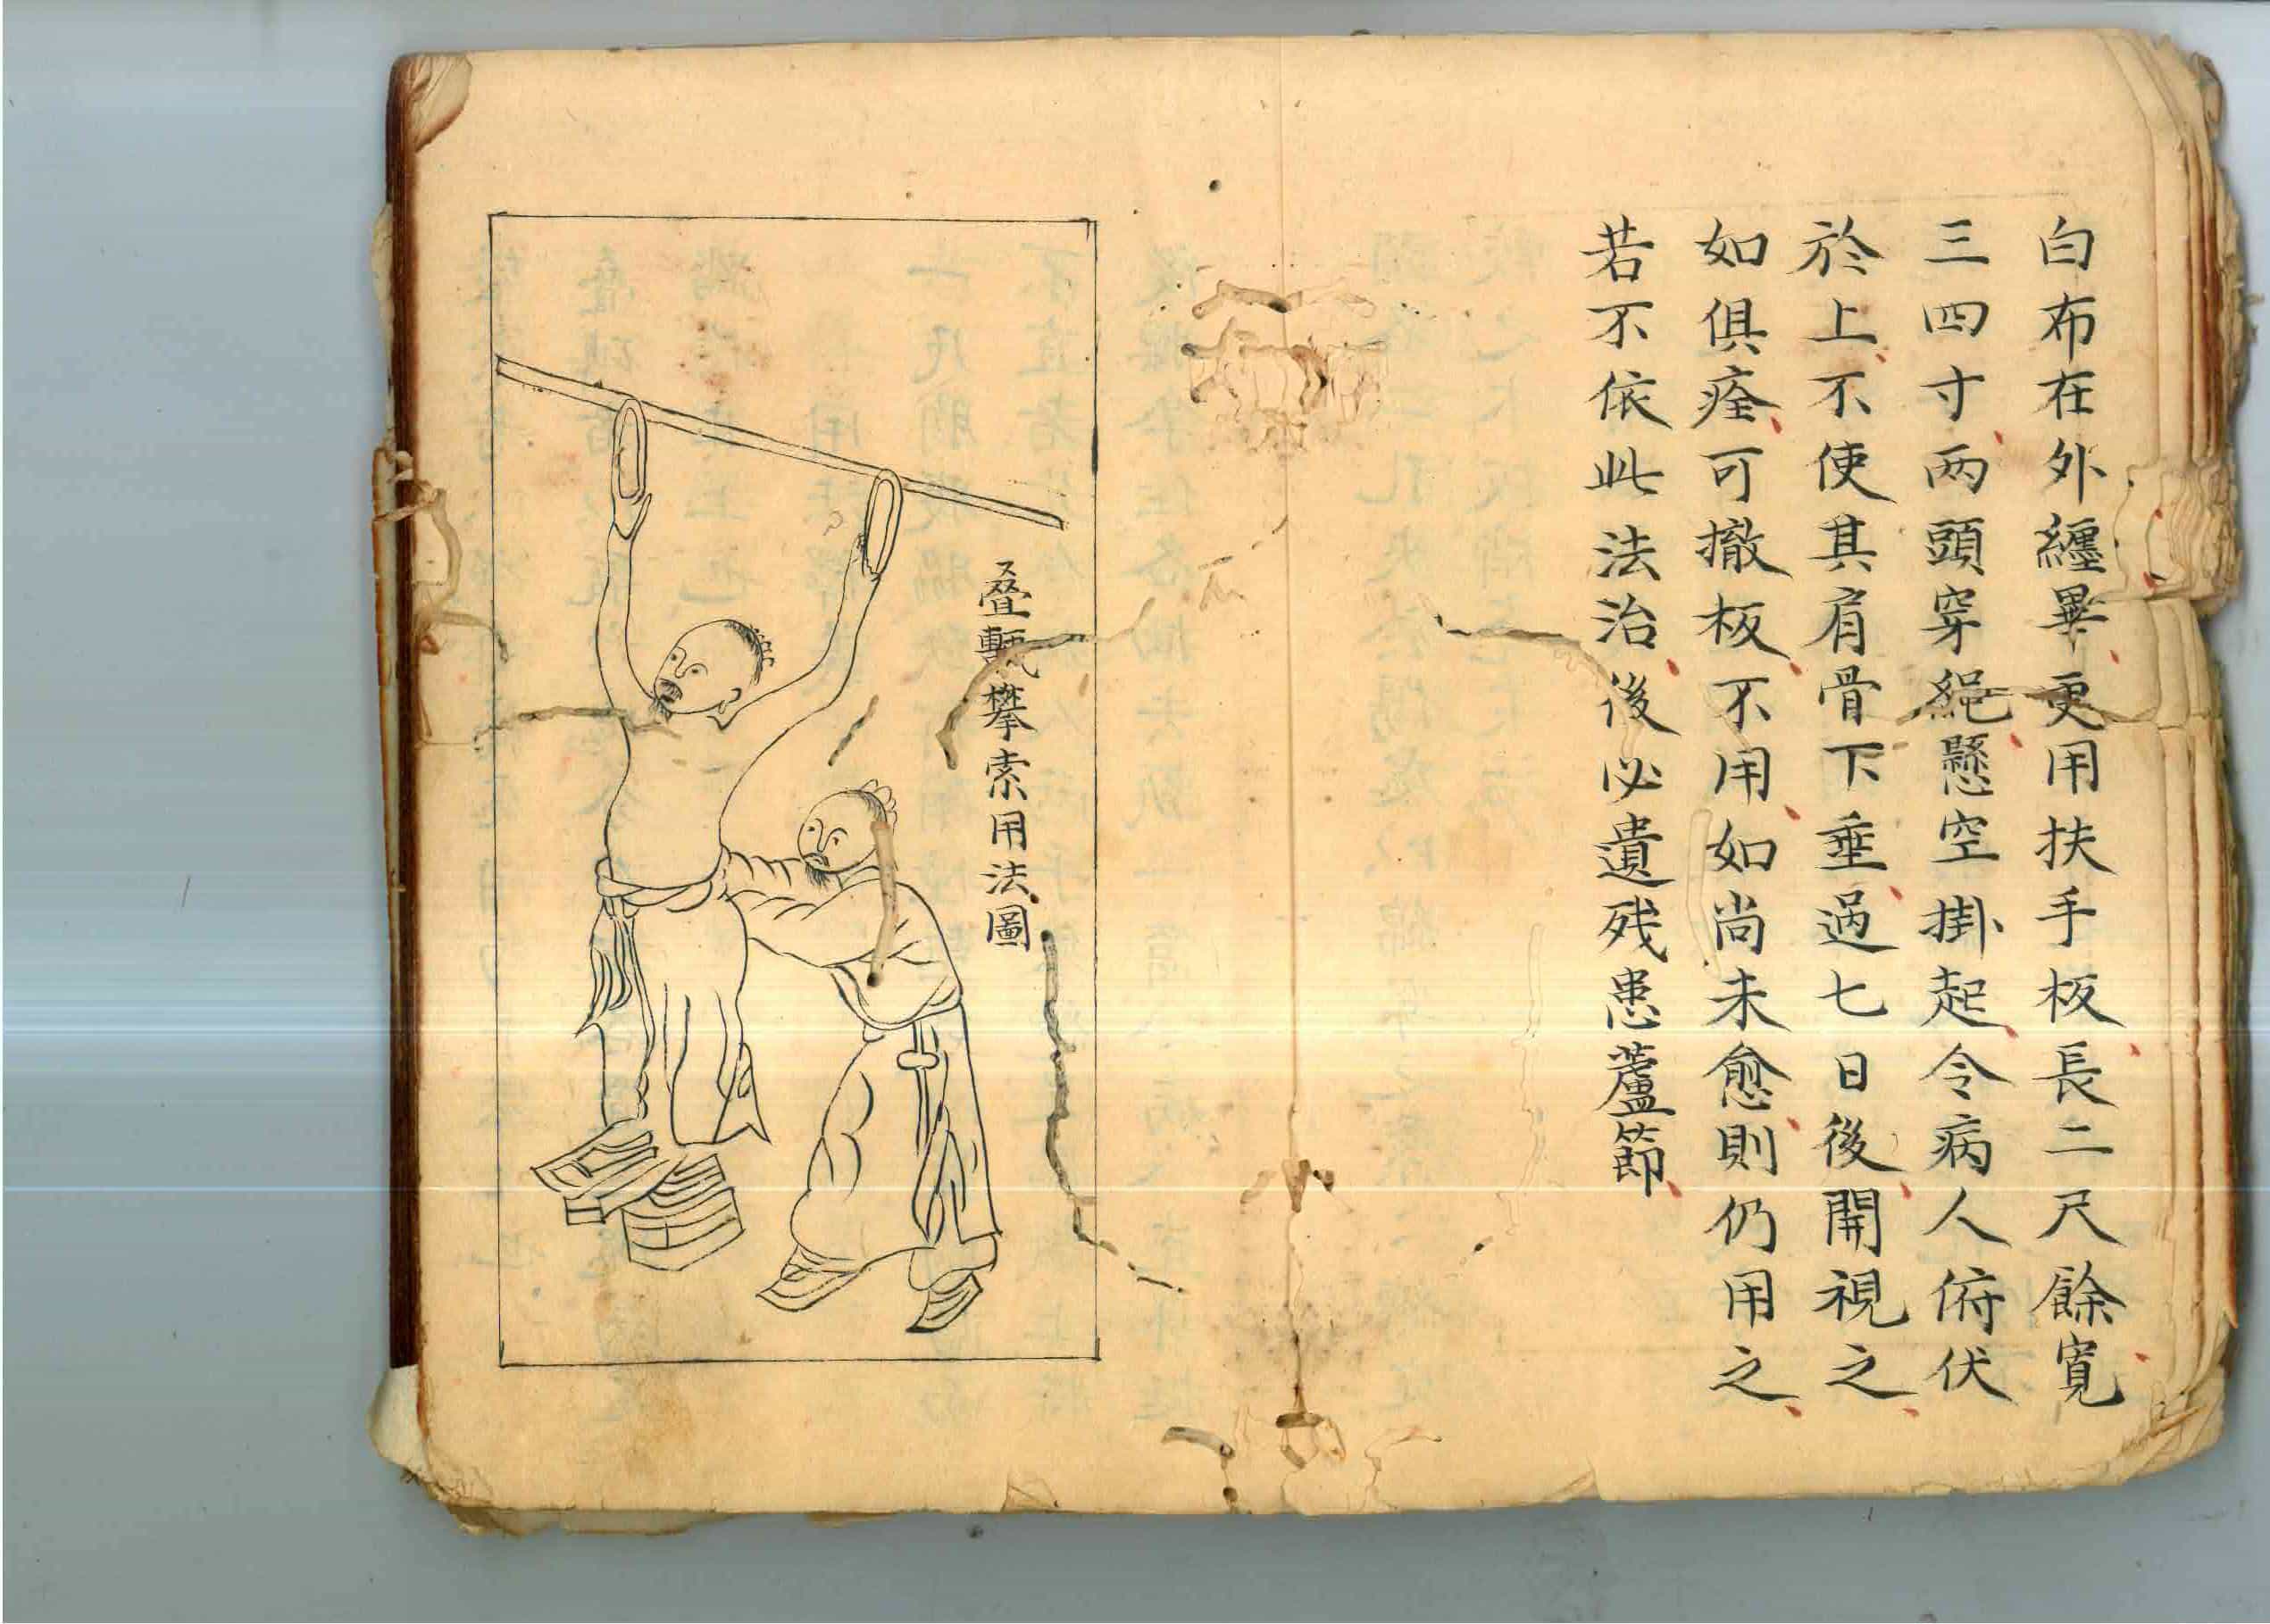 白布在外纏畢更用扶手板長二尺餘寬
三四寸两頭穿繩懸空掛起令病人俯伏
於上不使其肩骨下垂過七日後開視之
如俱痊可撤板不用如尚未愈則仍用之
若不依此法治後必遺殘患蘆節
叠甎攀索用法圖